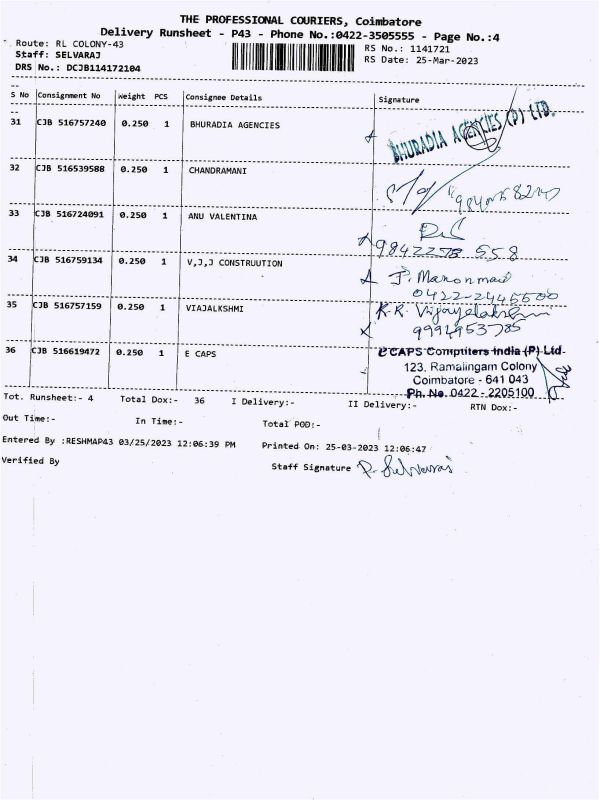 THE PROFESSIONAL COURIERS, Coimbatore
Delivery Runsheet - P43 - Phone No.:0422-3505555 - Page No.:4
Route: RL COLONY-43
RS No.: 1141721
Staff: SELVARAJ
RS Date: 25-Mar-2023
DRS No.: DCJB114172104
S No Consignment No Weight PCS Consignee Details Signature
31 CJB 516757240 0.250 1 BHURADIA AGENCIES
BHURADIA AGENCIES (P) LTD.
32 CJB 516539588 0.250 1 CHANDRAMANI
33 CJB 516724091 0.250 1 ANU VALENTINA
558
34 CJB 516759134 0.250 1 V,J,J CONSTRUUTION
0422-2445500
35 CJB 516757159 0.250 1 VIAJALKSHMI
K.R. Vijayalakshmi
36 CJB 516619472 0.250 1 E CAPS
E CAPS Comptiters India (P) Ltd.
123, Ramalingam Colony
Coimbatore - 641 043
Ph. No. 0422 - 2205100
Tot. Runsheet:- 4 Total Dox:- 36 I Delivery:- II Delivery:- RTN Dox:-
Out Time:- In Time:- Total POD:-
Entered By :RESHMAP43 03/25/2023 12:06:39 PM Printed On: 25-03-2023 12:06:47
Verified By Staff Signature P. Selvaraj